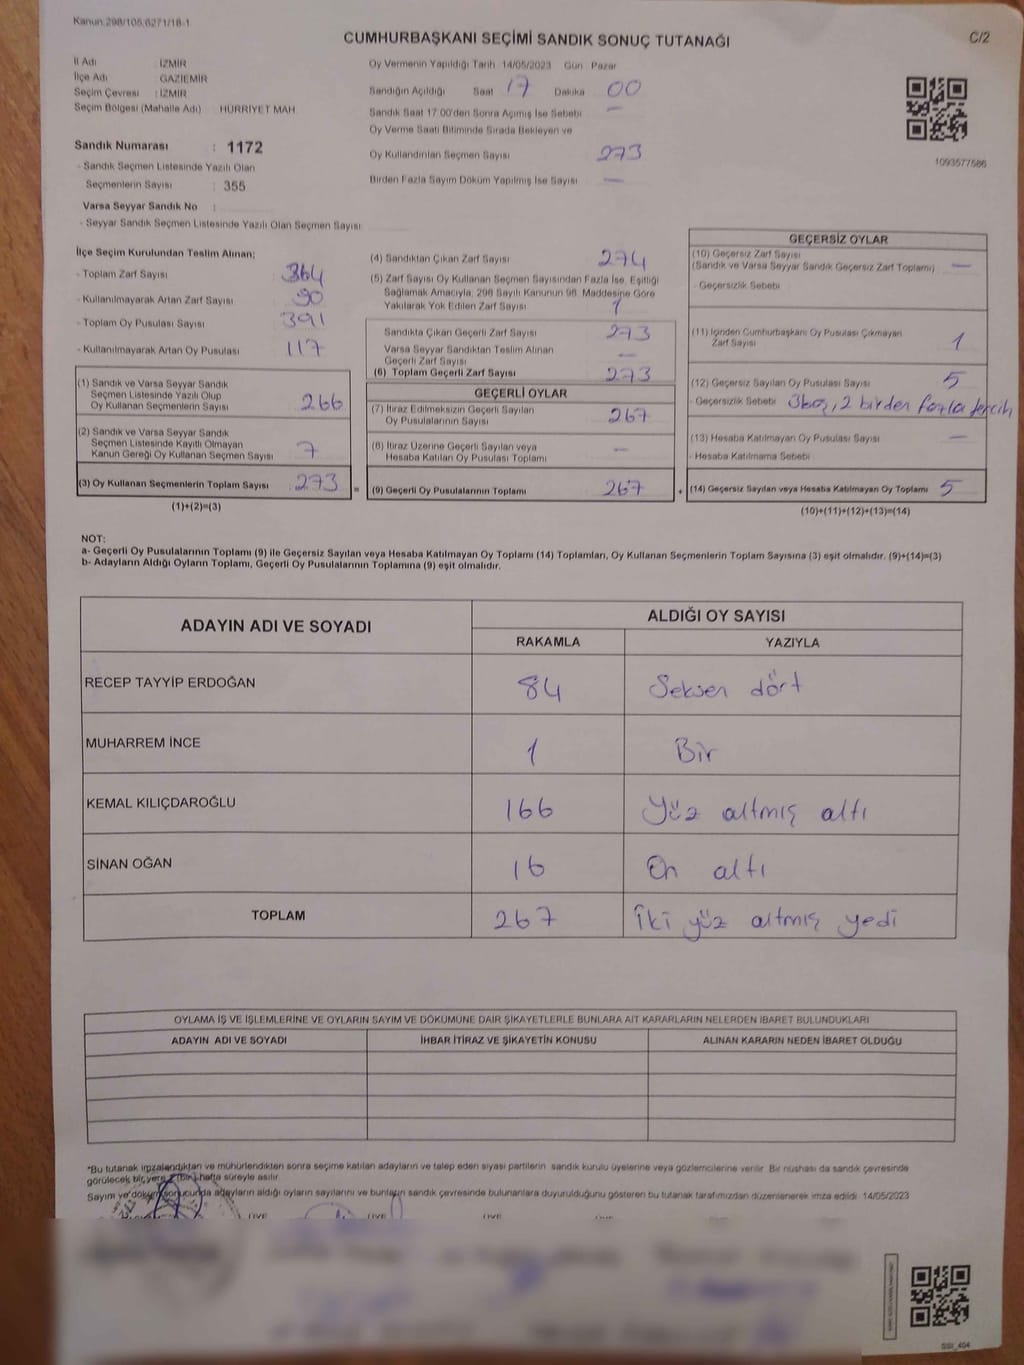 Kanun.298/105,6271/18-1
CUMHURBAŞKANI SEÇİMİ SANDIK SONUÇ TUTANAĞI
C/2
İl Adı : İZMİR
İlçe Adı : GAZİEMİR
Seçim Çevresi : İZMİR
Seçim Bölgesi (Mahalle Adı) HÜRRİYET MAH.
Oy Vermenin Yapıldığı Tarih 14/05/2023 Gün Pazar
Sandığın Açıldığı Saat 17 Dakika 00
Sandık Saat 17.00'den Sonra Açımış İse Sebebi —
Oy Verme Saati Bitiminde Sırada Bekleyen ve
Oy Kullandırılan Seçmen Sayısı 273
Birden Fazla Sayım Döküm Yapılmış İse Sayısı —
1093577586
Sandık Numarası : 1172
- Sandık Seçmen Listesinde Yazılı Olan
Seçmenlerin Sayısı : 355
Varsa Seyyar Sandık No :
- Seyyar Sandık Seçmen Listesinde Yazılı Olan Seçmen Sayısı
İlçe Seçim Kurulundan Teslim Alınan;
- Toplam Zarf Sayısı 364
- Kullanılmayarak Artan Zarf Sayısı 90
- Toplam Oy Pusulası Sayısı 391
- Kullanılmayarak Artan Oy Pusulası 117
(1) Sandık ve Varsa Seyyar Sandık
Seçmen Listesinde Yazılı Olup
Oy Kullanan Seçmenlerin Sayısı 266
(2) Sandık ve Varsa Seyyar Sandık
Seçmen Listesinde Kayıtlı Olmayan
Kanun Gereği Oy Kullanan Seçmen Sayısı 7
(3) Oy Kullanan Seçmenlerin Toplam Sayısı 273 =
(1)+(2)=(3)
(4) Sandıktan Çıkan Zarf Sayısı 274
(5) Zarf Sayısı Oy Kullanan Seçmen Sayısından Fazla İse, Eşitliği
Sağlamak Amacıyla; 298 Sayılı Kanunun 98. Maddesine Göre
Yakılarak Yok Edilen Zarf Sayısı 1
Sandıkta Çıkan Geçerli Zarf Sayısı 273
Varsa Seyyar Sandıktan Teslim Alınan
Geçerli Zarf Sayısı —
(6) Toplam Geçerli Zarf Sayısı 273
GEÇERLİ OYLAR
(7) İtiraz Edilmeksizin Geçerli Sayılan
Oy Pusulalarının Sayısı 267
(8) İtiraz Üzerine Geçerli Sayılan veya
Hesaba Katılan Oy Pusulası Toplamı —
(9) Geçerli Oy Pusulalarının Toplamı 267 +
GEÇERSİZ OYLAR
(10) Geçersiz Zarf Sayısı
(Sandık ve Varsa Seyyar Sandık Geçersiz Zarf Toplamı) —
- Geçersizlik Sebebi
(11) İçinden Cumhurbaşkanı Oy Pusulası Çıkmayan
Zarf Sayısı 1
(12) Geçersiz Sayılan Oy Pusulası Sayısı 5
- Geçersizlik Sebebi 3 boş, 2 birden fazla tercih
(13) Hesaba Katılmayan Oy Pusulası Sayısı —
- Hesaba Katılmama Sebebi
(14) Geçersiz Sayılan veya Hesaba Katılmayan Oy Toplamı 5
(10)+(11)+(12)+(13)=(14)
NOT:
a- Geçerli Oy Pusulalarının Toplamı (9) ile Geçersiz Sayılan veya Hesaba Katılmayan Oy Toplamı (14) Toplamları, Oy Kullanan Seçmenlerin Toplam Sayısına (3) eşit olmalıdır. (9)+(14)=(3)
b- Adayların Aldığı Oyların Toplamı, Geçerli Oy Pusulalarının Toplamına (9) eşit olmalıdır.
ADAYIN ADI VE SOYADI
ALDIĞI OY SAYISI
RAKAMLA YAZIYLA
RECEP TAYYİP ERDOĞAN 84 Seksen dört
MUHARREM İNCE 1 Bir
KEMAL KILIÇDAROĞLU 166 Yüz altmış altı
SİNAN OĞAN 16 On altı
TOPLAM 267 İki yüz altmış yedi
OYLAMA İŞ VE İŞLEMLERİNE VE OYLARIN SAYIM VE DÖKÜMÜNE DAİR ŞİKAYETLERLE BUNLARA AİT KARARLARIN NELERDEN İBARET BULUNDUKLARI
ADAYIN ADI VE SOYADI İHBAR İTİRAZ VE ŞİKAYETİN KONUSU ALINAN KARARIN NEDEN İBARET OLDUĞU
*Bu tutanak imzalandıktan ve mühürlendikten sonra seçime katılan adayların ve talep eden siyasi partilerin sandık kurulu üyelerine veya gözlemcilerine verilir. Bir nüshası da sandık çevresinde
görülecek bir yere 1 (bir) hafta süreyle asılır.
Sayım ve döküm sonucunda adayların aldığı oyların sayılarını ve bunların sandık çevresinde bulunanlara duyurulduğunu gösteren bu tutanak tarafımızdan düzenlenerek imza edildi. 14/05/2023
ÜYE ÜYE ÜYE ÜYE
SSİ_404